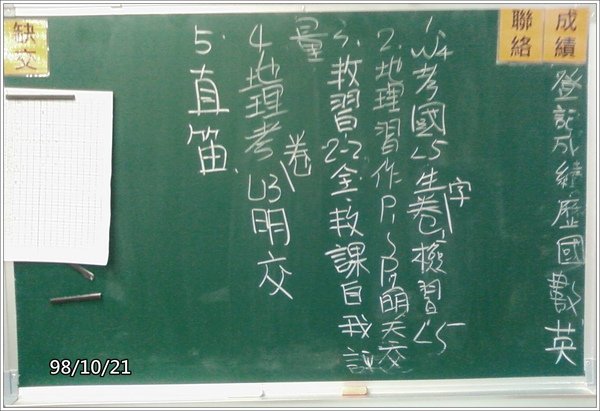 成績
聯絡
登記成績歷國數英
1. W4考國L5生字卷,檢習L5
2. 地理習作P1~P5明天交
3. 数習2-2全,数課自我評
量
4. 地理考卷L3明交
5. 直笛
缺交
98/10/21